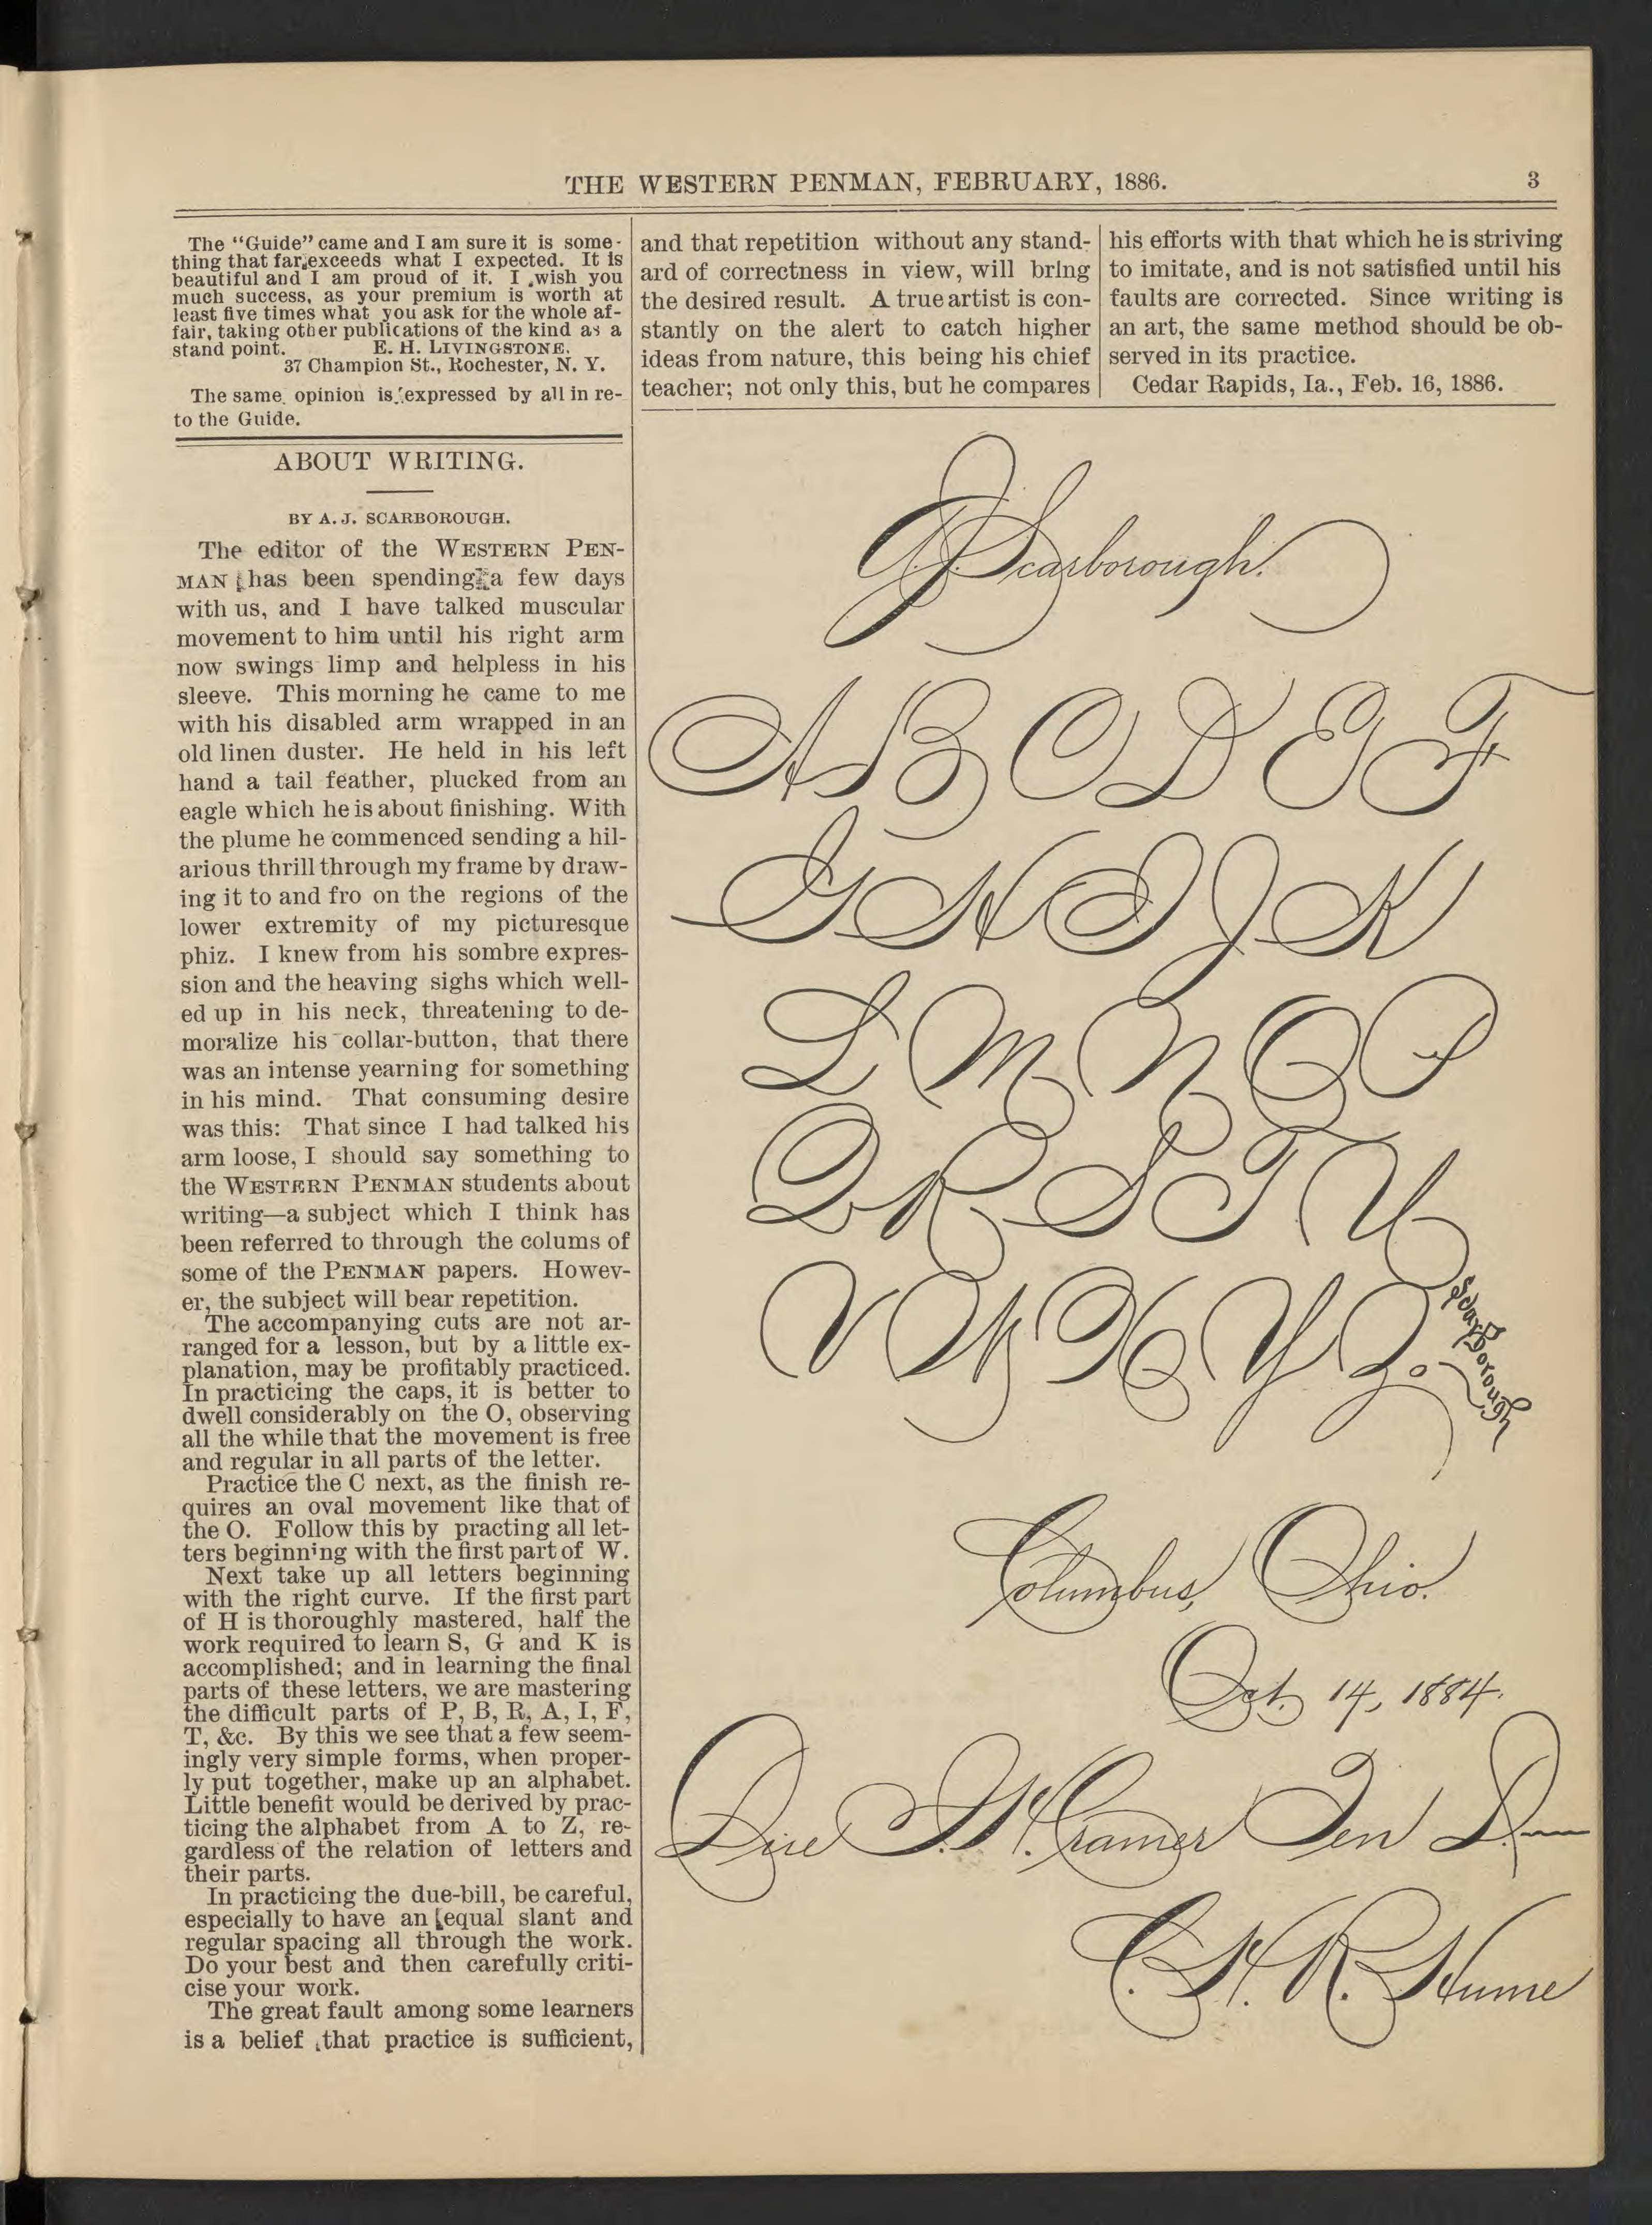 THE WESTERN PENMAN, FEBRUARY, 1886.
3
The "Guide" came and I am sure it is some-
thing that far exceeds what I expected. It is
beautiful and I am proud of it. I wish you
much success, as your premium is worth at
least five times what you ask for the whole af-
fair, taking other publications of the kind as a
stand point. E. H. LIVINGSTONE.
37 Champion St., Rochester, N. Y.
The same opinion is expressed by all in re-
to the Guide.
ABOUT WRITING.
BY A. J. SCARBOROUGH.
The editor of the WESTERN PEN-
MAN has been spending a few days
with us, and I have talked muscular
movement to him until his right arm
now swings limp and helpless in his
sleeve. This morning he came to me
with his disabled arm wrapped in an
old linen duster. He held in his left
hand a tail feather, plucked from an
eagle which he is about finishing. With
the plume he commenced sending a hil-
arious thrill through my frame by draw-
ing it to and fro on the regions of the
lower extremity of my picturesque
phiz. I knew from his sombre expres-
sion and the heaving sighs which well-
ed up in his neck, threatening to de-
moralize his collar-button, that there
was an intense yearning for something
in his mind. That consuming desire
was this: That since I had talked his
arm loose, I should say something to
the WESTERN PENMAN students about
writing—a subject which I think has
been referred to through the colums of
some of the PENMAN papers. Howev-
er, the subject will bear repetition.
The accompanying cuts are not ar-
ranged for a lesson, but by a little ex-
planation, may be profitably practiced.
In practicing the caps, it is better to
dwell considerably on the O, observing
all the while that the movement is free
and regular in all parts of the letter.
Practice the C next, as the finish re-
quires an oval movement like that of
the O. Follow this by practing all let-
ters beginning with the first part of W.
Next take up all letters beginning
with the right curve. If the first part
of H is thoroughly mastered, half the
work required to learn S, G and K is
accomplished; and in learning the final
parts of these letters, we are mastering
the difficult parts of P, B, R, A, I, F,
T, &c. By this we see that a few seem-
ingly very simple forms, when proper-
ly put together, make up an alphabet.
Little benefit would be derived by prac-
ticing the alphabet from A to Z, re-
gardless of the relation of letters and
their parts.
In practicing the due-bill, be careful,
especially to have an equal slant and
regular spacing all through the work.
Do your best and then carefully criti-
cise your work.
The great fault among some learners
is a belief that practice is sufficient,
and that repetition without any stand-
ard of correctness in view, will bring
the desired result. A true artist is con-
stantly on the alert to catch higher
ideas from nature, this being his chief
teacher; not only this, but he compares
his efforts with that which he is striving
to imitate, and is not satisfied until his
faults are corrected. Since writing is
an art, the same method should be ob-
served in its practice.
Cedar Rapids, Ia., Feb. 16, 1886.
A. J. Scarborough.
A B C D E F
G H I J K
L M N O P
Q R S T U
V W X Y Z.
Scarborough
Columbus, Ohio.
Oct. 14, 1884.
Due H. Cramer Ten D
C. H. R. Hume